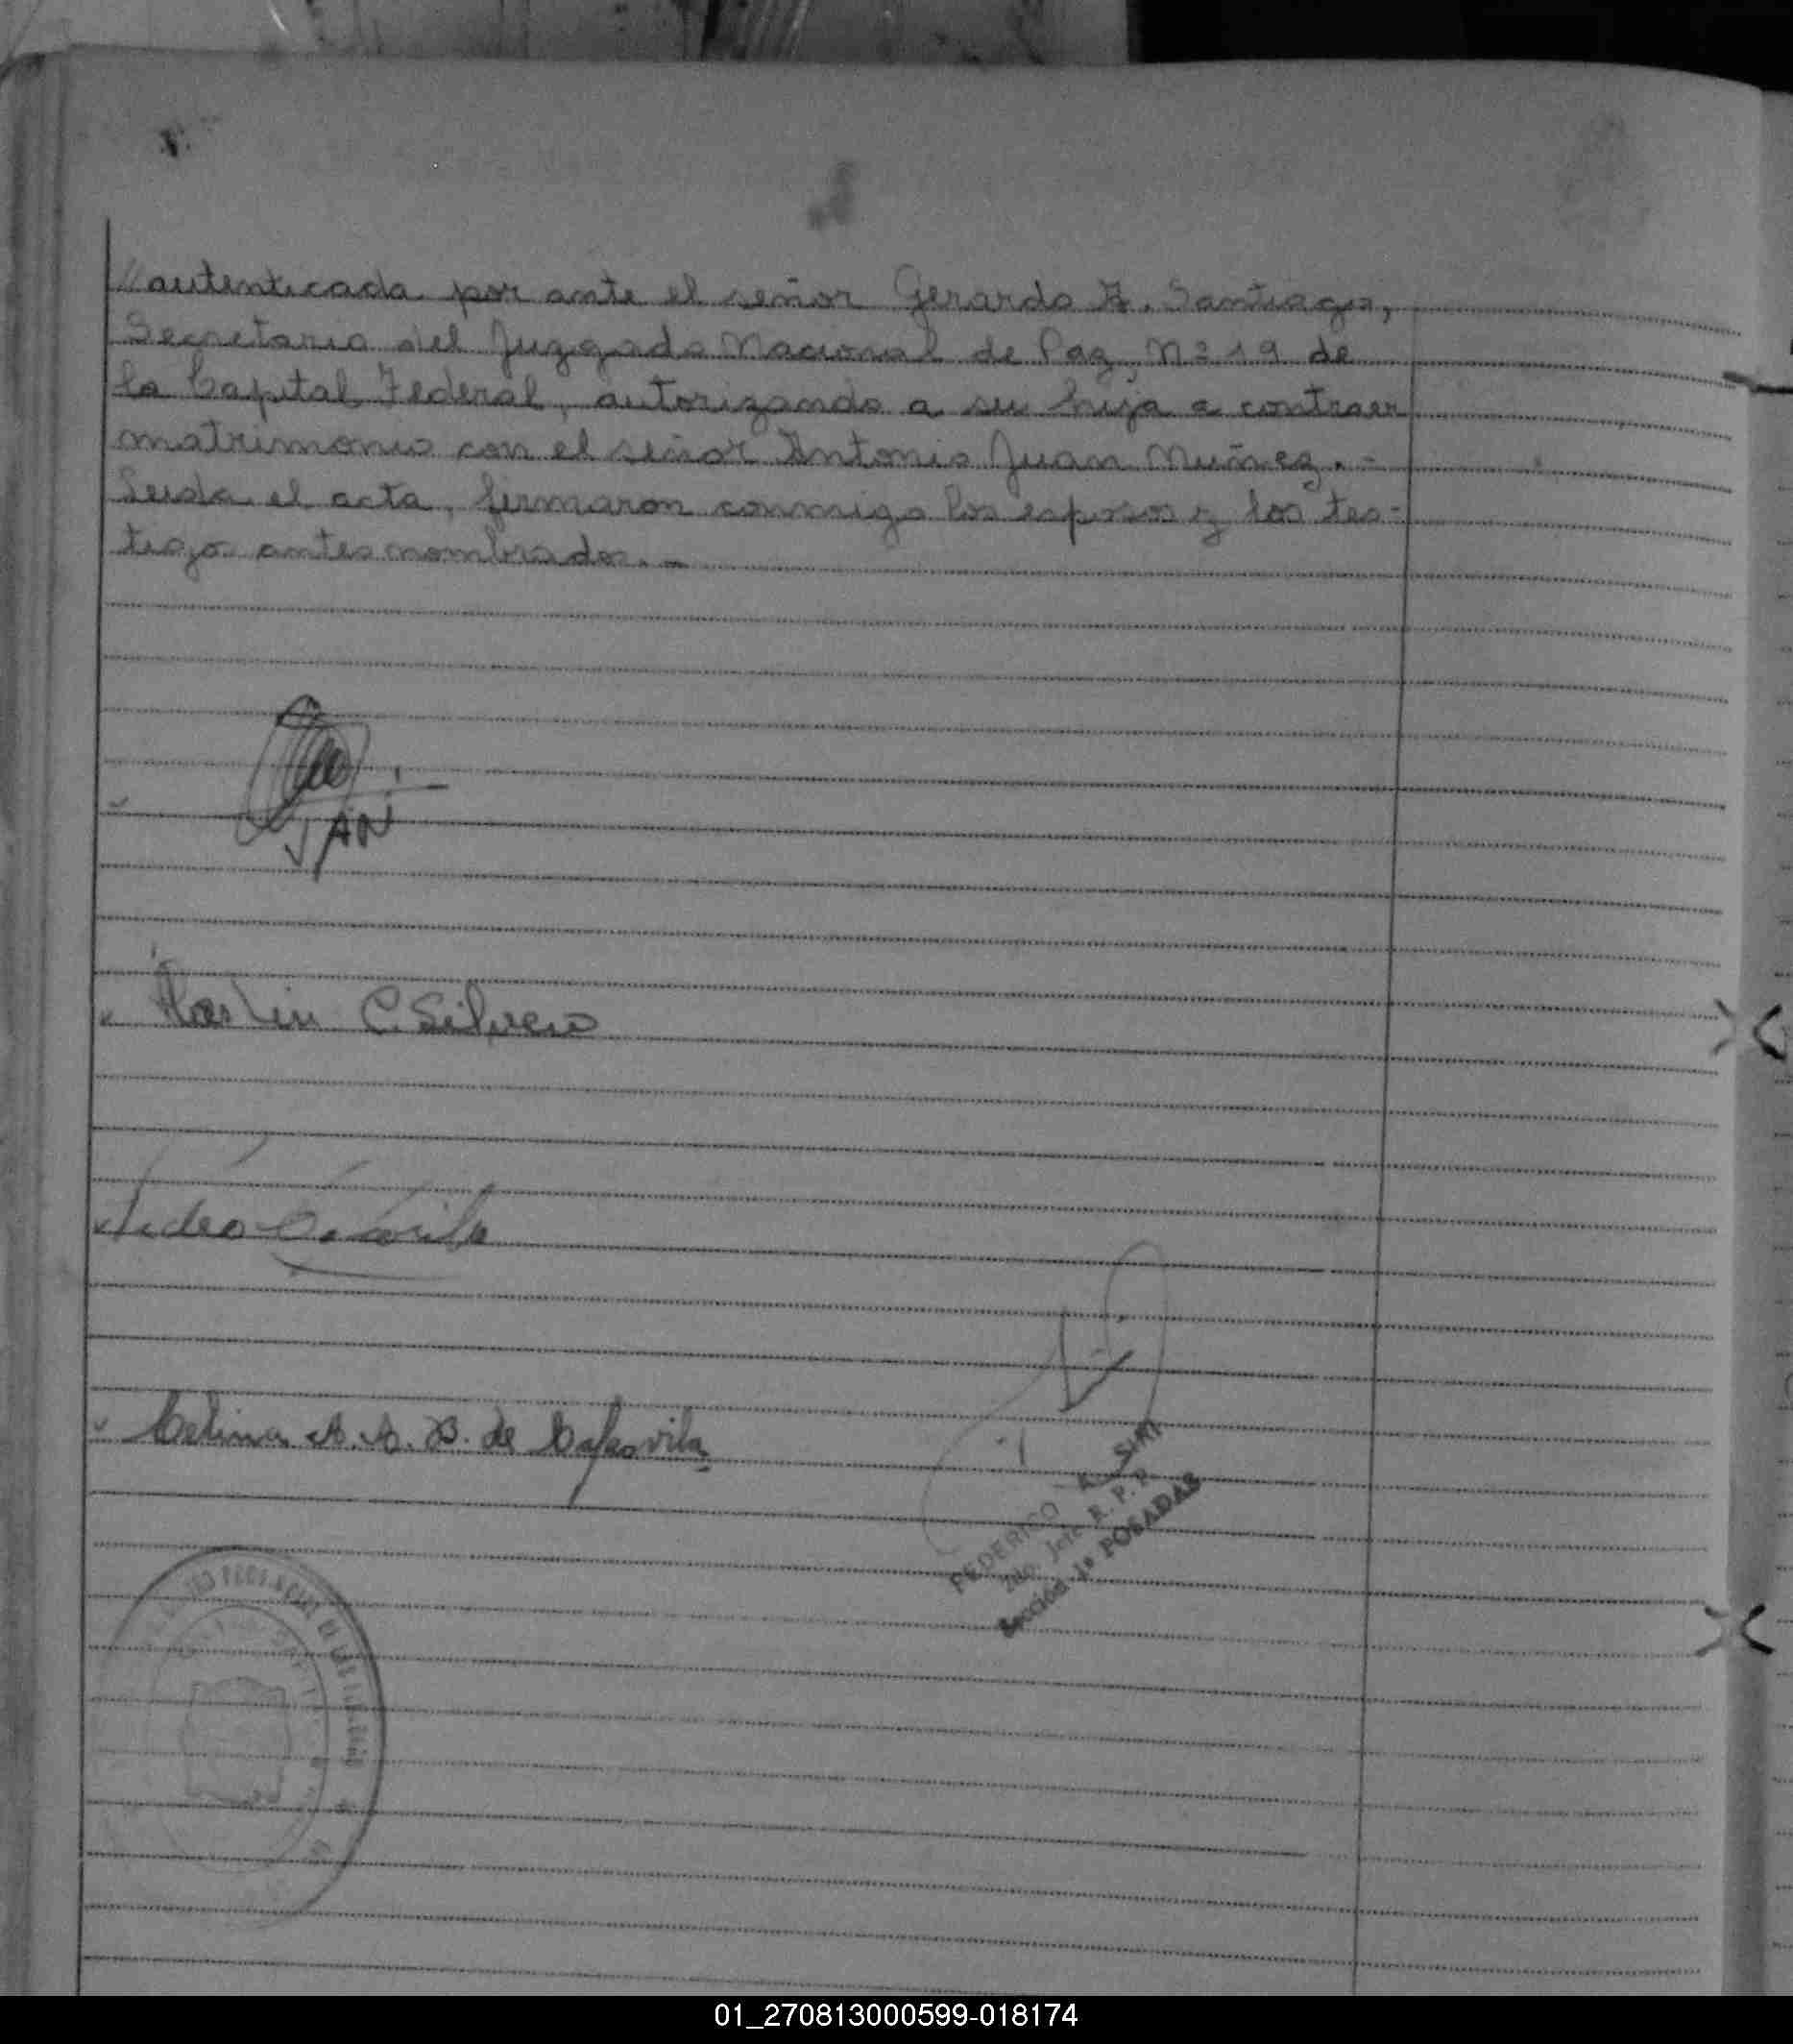 //autenticada por ante el señor Gerardo A. Santiago,
Secretario del Juzgado Nacional de Paz N° 19 de
la Capital Federal, autorizando a su hija a contraer
matrimonio con el señor Antonio Juan Muñez. -
Leida el acta, firmaron conmigo los esposos y los tes-
tigos antes nombrados. -
JAN
C. Silvero
Celina A. A. B. de
FEDERICO A.
2do. Jefe R. P. P.
Sección 1ª POSADAS
01_270813000599-018174